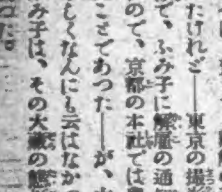 たけれど――東京の撮
で、ふみ子に解雇の通
ので、京都の本社では
ことであつた――が、
しくなんにも云はなかつ
み子は、その大蔵の態
つた。